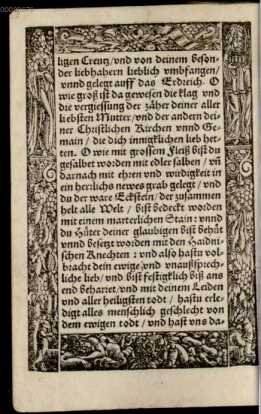 ligen Creutz/vnd von deinem beson-
der liebhabern lieblich vmbfangen/
vnnd gelegt auff das Erdreich. O
wie groß ist da gewesen die klag vnd
die vergiessung der zäher deiner aller
liebsten Mutter/vnd der andern dei-
ner Christlichen Kirchen vnnd Ge-
main / die dich innigklichen lieb het-
ten. O wie mit grossem fleiß bist du
gesalbet worden mit edler salben / vñ
darnach mit ehren vnd wirdigkeit in
ein herrlichs newes grab gelegt / vnd
du der ware Eckstein/der zusammen
helt alle Welt / bist bedeckt worden
mit einem marterlichen Stain: vnnd
du Hüter deiner glaubigen bist behüt
vnnd besetzt worden mit den Haidni-
schen Knechten : vnd also hastu vol-
bracht dein ewige vnd vnaußsprech-
liche lieb/vnd bist festigklich biß ans
end beharret/vnd mit deinem Leiden
vnd aller heiligsten todt / hastu erle-
digt alles menschlich geschlecht von
dem ewigen todt / vnd hast vns da-